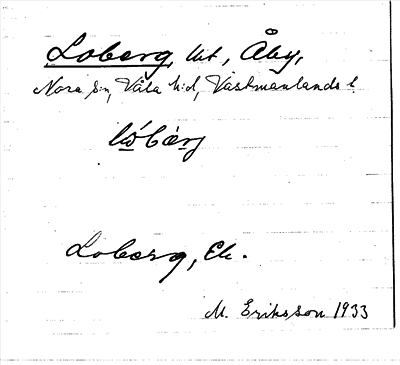 Loberg, lht, Åby,
Nora sn, Våla hd, Västmanlands l.
lóbærj
Loberg, Ek.
M. Eriksson 1933